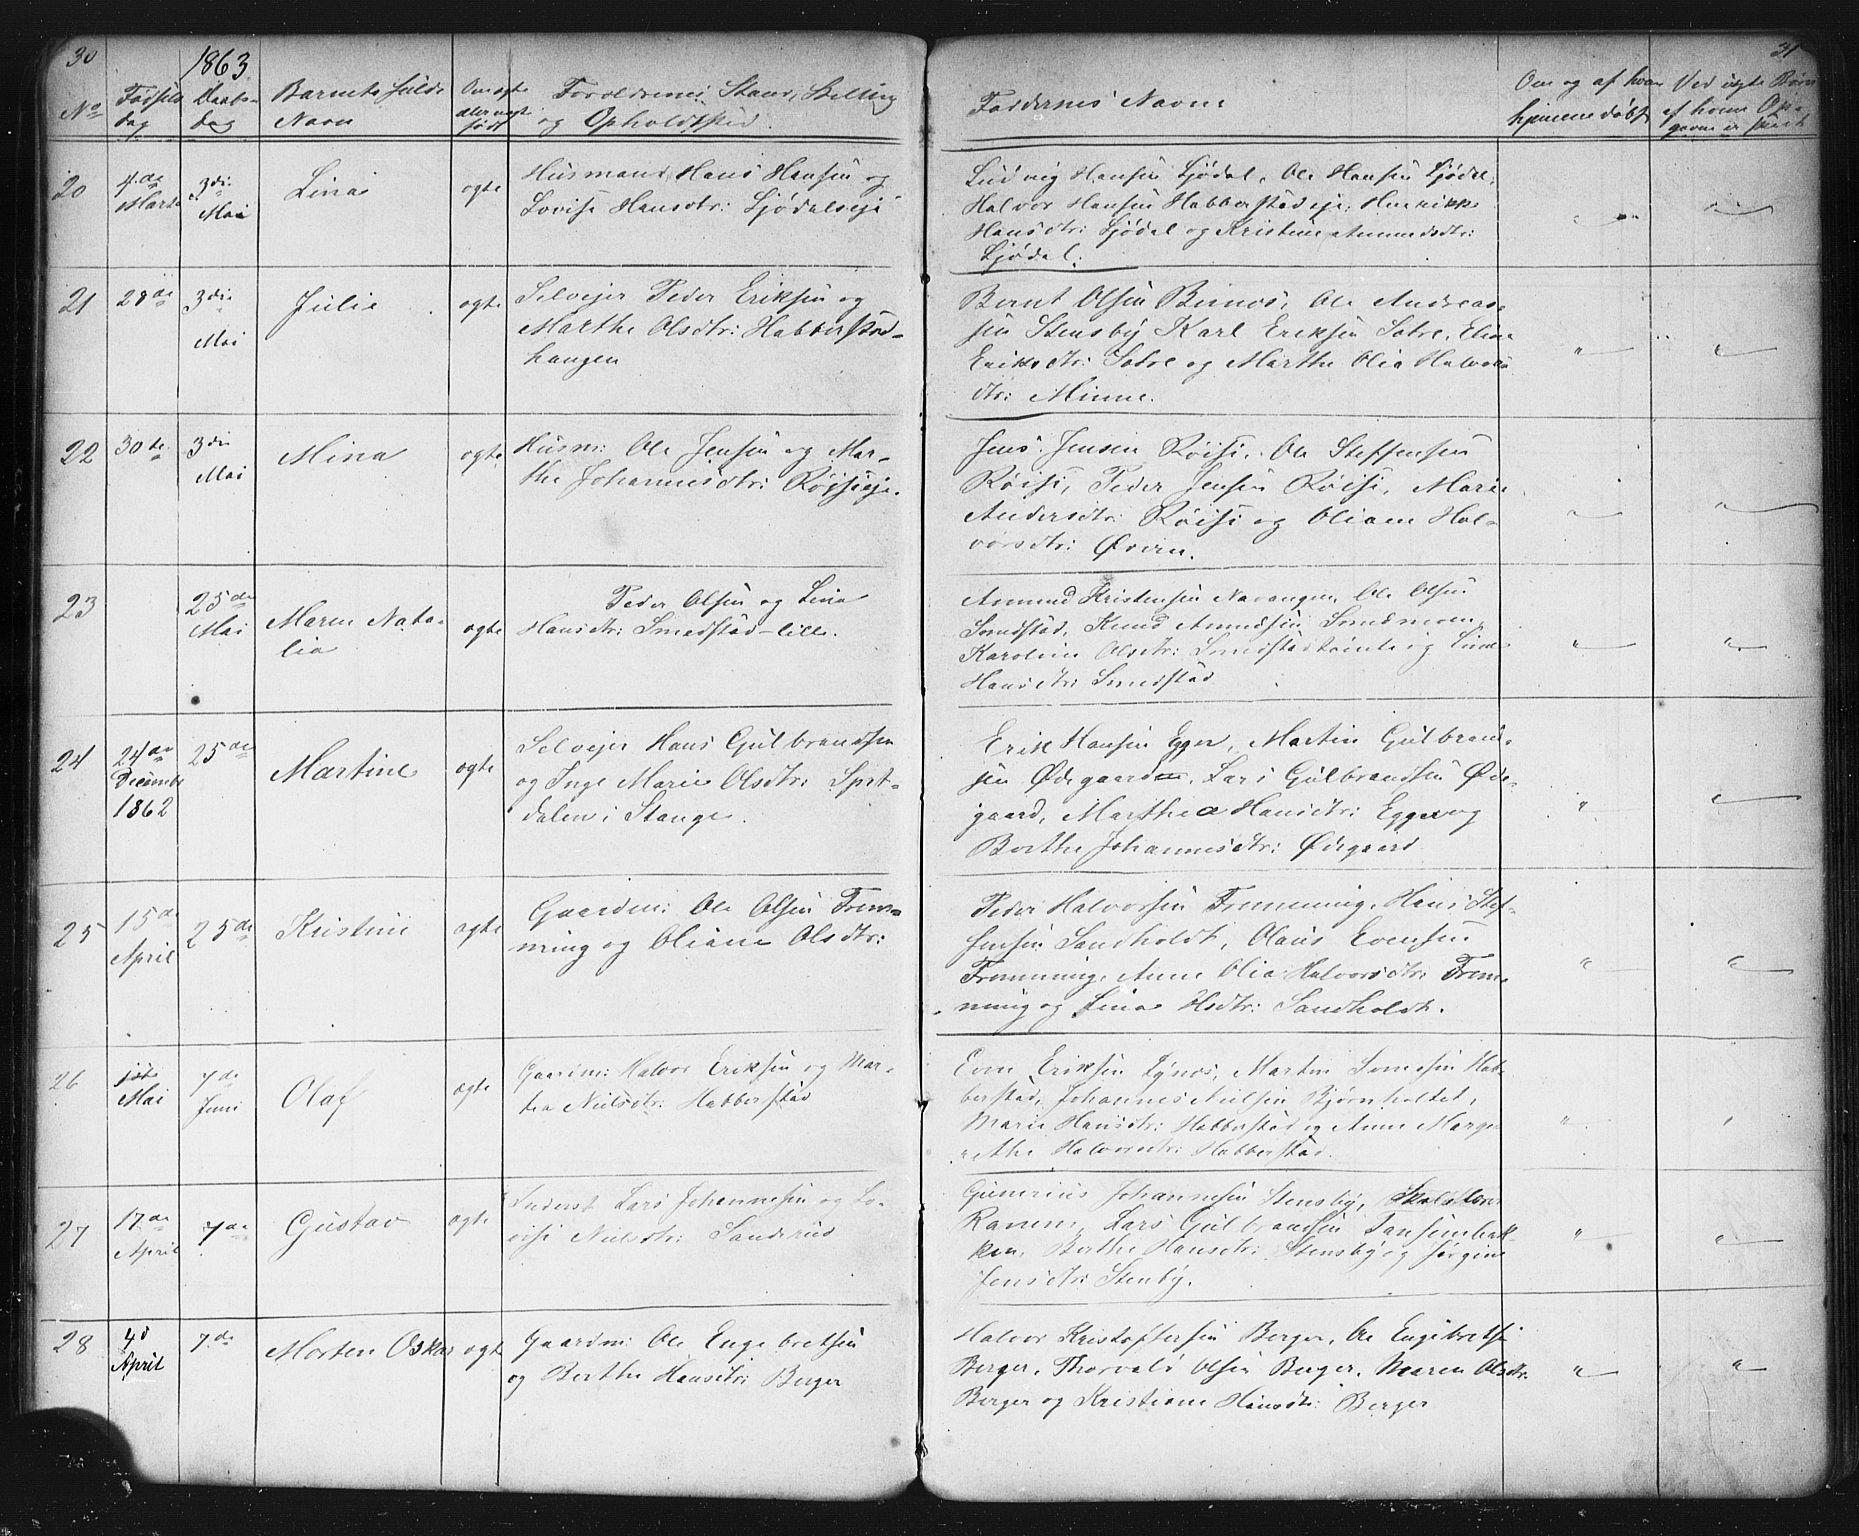 30
1863
31
No
Fødsels
dag
Daabs-
dag
Barnets fulde
Navn
Om ægte
eller uægte
født
Forældrenes Stand, Stilling
og Opholdssted
Faddernes Navne
Om og af hvem
hjemmedøbt
Ved uægte Børn
af hvem Op-
gaven er skeet
20
4de
Marts
3die
Mai
Lina
ægte
Husmand Hans Hansen og
Lovise Hansdtr: Ljødalseje
Ludvig Hansen Ljødal, Ole Hansen Ljødal,
Halvor Hansen Habberstadeje, Henrikke
Hansdtr: Ljødal og Kristine Amundsdtr:
Ljødal.
21
28de
3die
Mai
Julie
ægte
Selvejer Peder Eriksen og
Marthe Olsdtr: Habberstad-
haugen
Bernt Olsen Bunes, Ole Andreas-
sen Stensby Karl Eriksen Sætre, Eline
Eriksdtr: Sætre og Marthe Olia Halvors
dtr: Minne.
22
30te
3die
Mai
Mina
ægte
Husm: Ole Jensen og Mar-
the Johannesdtr: Røjseje.
Jens Jensen Røise, Ole Steffensen
Røise, Peder Jensen Røise, Marie
Andersdtr: Røise og Oliane Hal-
vorsdtr: Øvren.
23
25de
Mai
Maren Nata-
lia
ægte
Peder Olsen og Lina
Hansdtr: Smedstad-lille.
Amund Kristensen Narangen, Ole Olsen
Smedstad, Knud Amundsen Smedmoen,
Karoline Olsdtr: Smedstadtomte og Lina
Hansdtr: Smedstad
24
24de
Decembr
1862
25de
Martine
ægte
Selvejer Hans Gulbrandsen
og Inge Marie Olsdtr:
dalen i Stange.
Erik Hansen Egge, Martin Gulbrand-
sen Ødegaard, Lars Gulbrandsen Øde-
gaard, Marthea Hansdtr: Egge og
Berthe Johannesdtr: Ødegaard
25
15de
April
25de
Kristine
ægte
Gaardm: Ole Olsen Frem-
ming og Oliane Olsdtr:
Peder Halvorsen Fremming, Hans Stef-
fensen Sandholdt, Olaus Evensen
Fremming, Anne Olia Halvorsdtr: Frem-
ming og Lina Olsdtr: Sandholdt.
26
1ste
Mai
7de
Juni
Olaf
ægte
Gaardm: Halvor Eriksen og Mar-
thea Nielsdtr: Habberstad
Even Eriksen Lynæs, Martin Hab-
berstad, Johannes Nielsen Bjørnholtet,
Marie Hansdtr: Habberstad og Anne Marge-
rethe Halvorsdtr: Habberstad.
27
17de
April
7de
Gustav
ægte
Inderst Lars Johannesen og Lo-
vise Nielsdtr: Sanderud
Gunerius Johannesen Stensby, Skolelærer
Ranem, Lars Gulbrandsen Jansenbak-
ken, Berthe Hansdtr: Stensby og Jørgine
Jensdtr: Stenby.
28
4d
April
7de
Morten Oskar
ægte
Gaardm: Ole Engebretsen
og Berthe Hansdtr: Berger
Halvor Kristoffersen Berger, Ole Engebretse
Berger, Thorvald Olsen Berger, Maren Olsdtr:
Berger og Kristiane Hansdtr: Berger